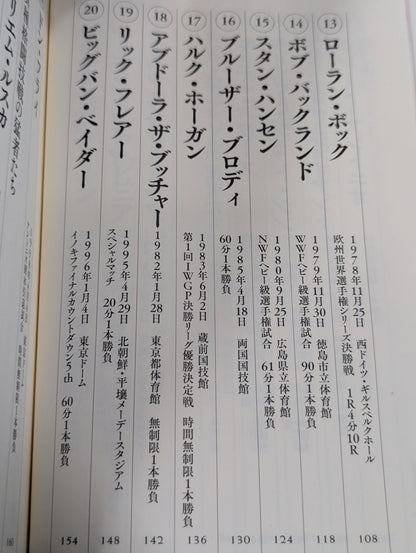 ⑬ ローラン・ボック
1978年11月25日 西ドイツ・ギルスベルクホール
欧州世界選手権シリーズ決勝戦 1R4分10R
108
⑭ ボブ・バックランド
1979年11月30日 徳島市立体育館
WWFヘビー級選手権試合 90分1本勝負
118
⑮ スタン・ハンセン
1980年9月25日 広島県立体育館
NWFヘビー級選手権試合 61分1本勝負
124
⑯ ブルーザー・ブロディ
1985年4月18日 両国国技館
60分1本勝負
130
⑰ ハルク・ホーガン
1983年6月2日 蔵前国技館
第1回IWGP決勝リーグ優勝決定戦 時間無制限1本勝負
136
⑱ アブドーラ・ザ・ブッチャー
1982年1月28日 東京都体育館 無制限1本勝負
142
⑲ リック・フレアー
1995年4月29日 北朝鮮・平壌メーデースタジアム
スペシャルマッチ 20分1本勝負
148
⑳ ビッグバン・ベイダー
1996年1月4日 東京ドーム
イノキファイナルカウントダウン5th 60分1本勝負
154
の猛者たち
リエム・ルスカ
160